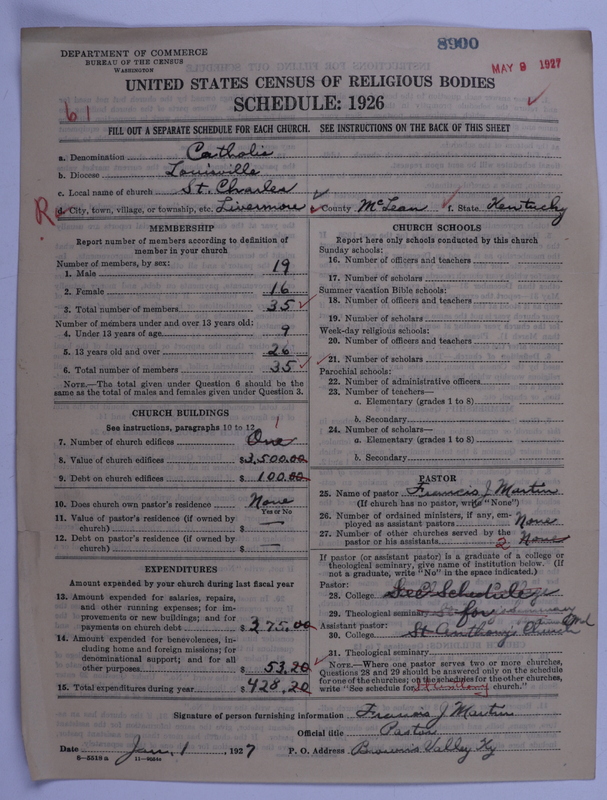 8900
DEPARTMENT OF COMMERCE
BUREAU OF THE CENSUS
WASHINGTON
MAY 9 1927
UNITED STATES CENSUS OF RELIGIOUS BODIES
SCHEDULE: 1926
61
FILL OUT A SEPARATE SCHEDULE FOR EACH CHURCH. SEE INSTRUCTIONS ON THE BACK OF THIS SHEET
a. Denomination Catholic
b. Diocese Louisville
c. Local name of church St. Charles
R
d. City, town, village, or township, etc. Livermore e. County McLean f. State Kentucky
MEMBERSHIP
Report number of members according to definition of
member in your church
Number of members, by sex:
1. Male 19
2. Female 16
3. Total number of members 35
Number of members under and over 13 years old:
4. Under 13 years of age 9
5. 13 years old and over 26
6. Total number of members 35
NOTE.—The total given under Question 6 should be
the same as the total of males and females given under Question 3.
CHURCH BUILDINGS
See instructions, paragraphs 10 to 12
7. Number of church edifices One 1
8. Value of church edifices $3,500.00
9. Debt on church edifices $100.00
10. Does church own pastor's residence None
Yes or No
11. Value of pastor's residence (if owned by
church) $ —
12. Debt on pastor's residence (if owned by
church) $ —
EXPENDITURES
Amount expended by your church during last fiscal year
13. Amount expended for salaries, repairs,
and other running expenses; for im-
provements or new buildings; and for
payments on church debt $375.00
14. Amount expended for benevolences, in-
cluding home and foreign missions; for
denominational support; and for all
other purposes $53.20
15. Total expenditures during year $428.20
CHURCH SCHOOLS
Report here only schools conducted by this church
Sunday schools:
16. Number of officers and teachers
17. Number of scholars
Summer vacation Bible schools:
18. Number of officers and teachers
19. Number of scholars
Week-day religious schools:
20. Number of officers and teachers
21. Number of scholars
Parochial schools:
22. Number of administrative officers
23. Number of teachers—
a. Elementary (grades 1 to 8)
b. Secondary
24. Number of scholars—
a. Elementary (grades 1 to 8)
b. Secondary
PASTOR
25. Name of pastor Francis J Martin
(If church has no pastor, write "None")
26. Number of ordained ministers, if any, em-
ployed as assistant pastors None
27. Number of other churches served by the
pastor or his assistants 2 None
If pastor (or assistant pastor) is a graduate of a college or
theological seminary, give name of institution below. (If
not a graduate, write "No" in the space indicated.)
Pastor:
28. College See Schedule
29. Theological seminary for
Assistant pastor:
30. College St Anthony's Church
31. Theological seminary
NOTE.—Where one pastor serves two or more churches,
Questions 28 and 29 should be answered only on the schedule
for one of the churches; on the schedules for the other churches,
write "See schedule for St Anthony church."
Signature of person furnishing information Francis J Martin
Official title Pastor
Date Jan. 1, 1927 P. O. Address Browns Valley Ky
6-5518 a